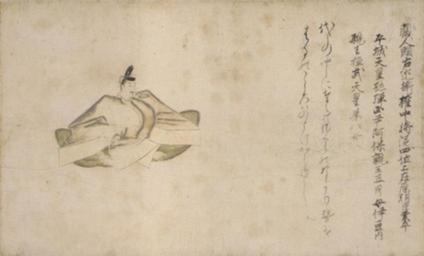 蔵人頭右近衛権中将従四位上在原朝臣業平
平城天皇孫弾正尹阿保親王三男母伊豆内
親王桓武天皇第八女
代の中にたえてさくらのなかりせは
はるのこゝろはのとけからまし